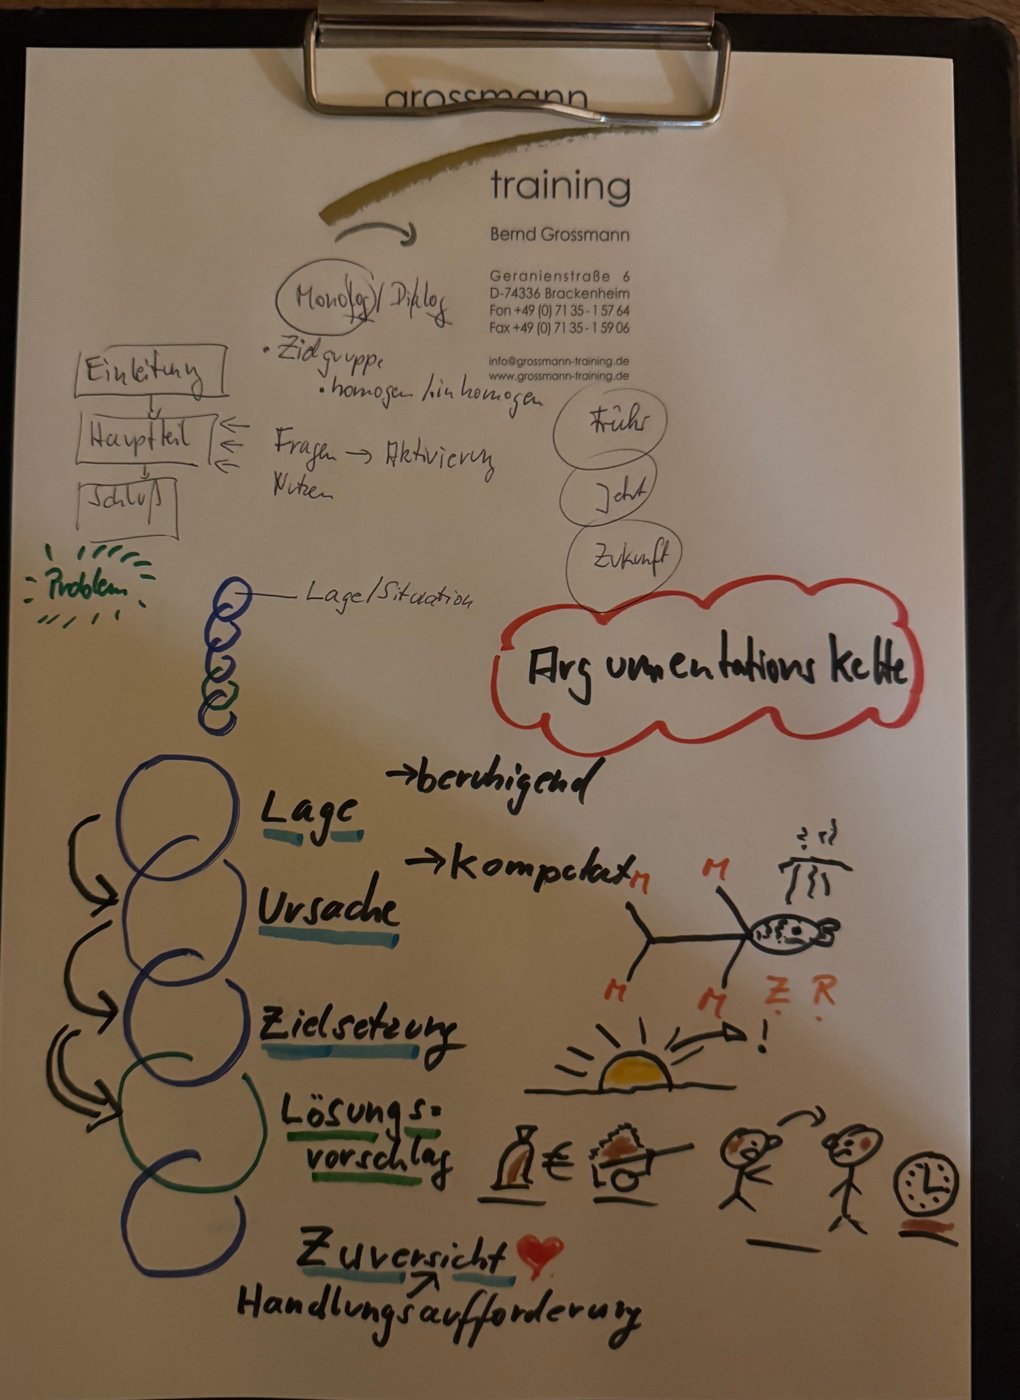 grossmann
training
Bernd Grossmann
Geranienstraße 6
D-74336 Brackenheim
Fon +49 (0) 71 35 - 1 57 64
Fax +49 (0) 71 35 - 1 59 06
info@grossmann-training.de
www.grossmann-training.de
Monolog / Dialog
• Zielgruppe
• homogen / inhomogen
Einleitung
Hauptteil
Schluß
Fragen → Aktivierung
Nutzen
Früher
Jetzt
Zukunft
Problem
Lage/Situation
Argumentationskette
Lage
→ beruhigend
Ursache
→ kompetent
M
M
M
M
Z R
? ? ?
Zielsetzung
!
Lösungs-
vorschlag
€
Zuversicht
Handlungsaufforderung